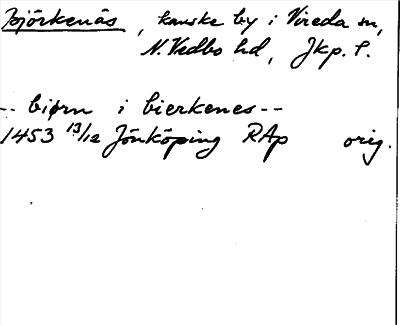 Björkenäs, kanske by i Vireda sn,
N. Vedbo hd, Jkp. l.
-- biørn i bierkenes --
1453 13/12 Jönköping RAp orig.